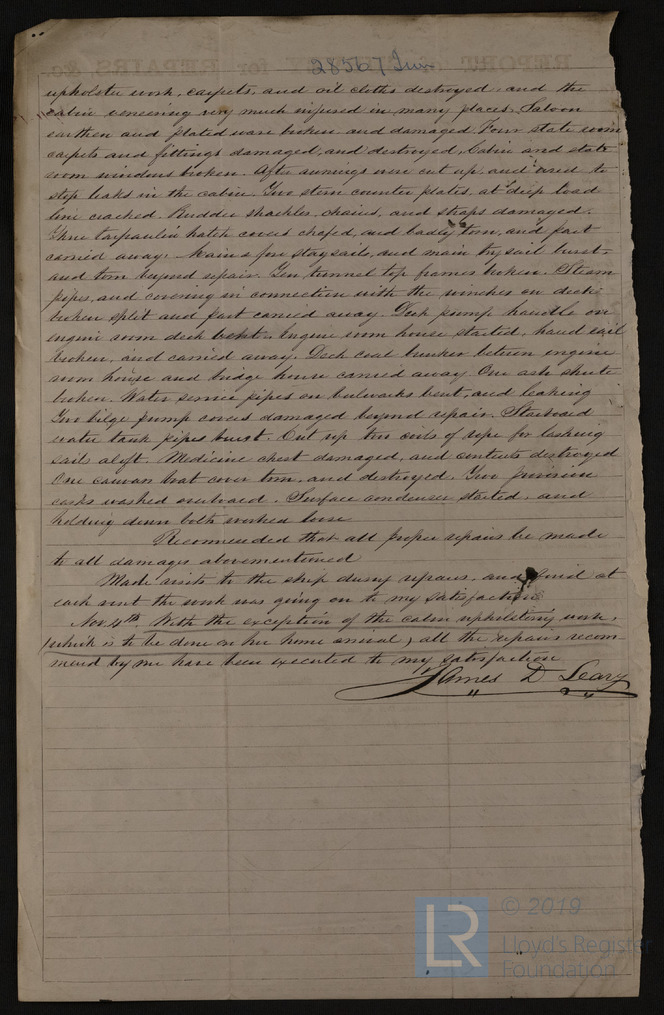 28567 Iron
upholster work, carpets, and oil cloths destroyed, and the
cabin veneering very much injured in many places. Saloon
earthen and plated ware broken and damaged. Four state room
carpets and fittings damaged, and destroyed, Cabin and state
room windows broken. After awnings were cut up, and used to
stop leaks in the cabin. Two stern counter plates, at deep load
line cracked. Rudder shackles, chains, and straps damaged.
Three tarpaulin hatch covers chafed, and badly torn, and part
carried away. Main & fore staysails, and main trysail burst,
and torn beyond repair. Ten tunnel top frames broken. Steam
pipes, and covering in connection with the winches on deck
broken split and part carried away. Deck pump handle on
engine room deck bent. Engine room house started, hand rail
broken, and carried away. Deck coal bunker between engine
room house and bridge house carried away. One ash shute
broken. Water service pipes on bulwarks bent, and leaking
Two bilge pump covers damaged beyond repair. Starboard
water tank pipes burst. Cut up two coils of rope for lashing
sails aloft. Medicine chest damaged, and contents destroyed
One canvas boat cover torn, and destroyed. Two provision
casks washed overboard. Surface condenser started, and
holding down bolts worked loose
Recommended that all proper repairs be made
to all damages abovementioned
Made visits to the ship during repairs, and found at
each visit the work was going on to my satisfaction
Nov 4th. With the exception of the cabin upholstering work,
(which is to be done on her home arrival) all the repairs recom-
mend by me have been executed to my satisfaction
James D Leary
LR
© 2019
Lloyd's Register
Foundation
REPORT for REPAIRS, &c.